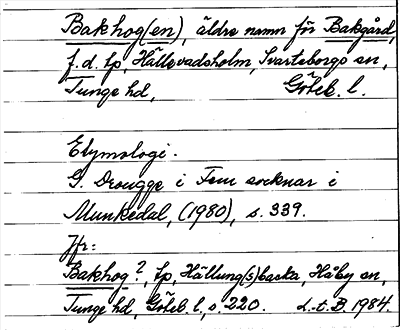 Bakhog(en), äldre namn för Bakgård,
f.d. lp, Hällevadsholm, Svarteborgs sn,
Tunge hd, Göteb. l.
Etymologi.
G. Drougge i Fem socknar i
Munkedal, (1980), s. 339.
Jfr:
Bakhog?, lp, Hällung(s)backa, Håby sn,
Tunge hd, Göteb. l, s. 220. L.t.B. 1984.